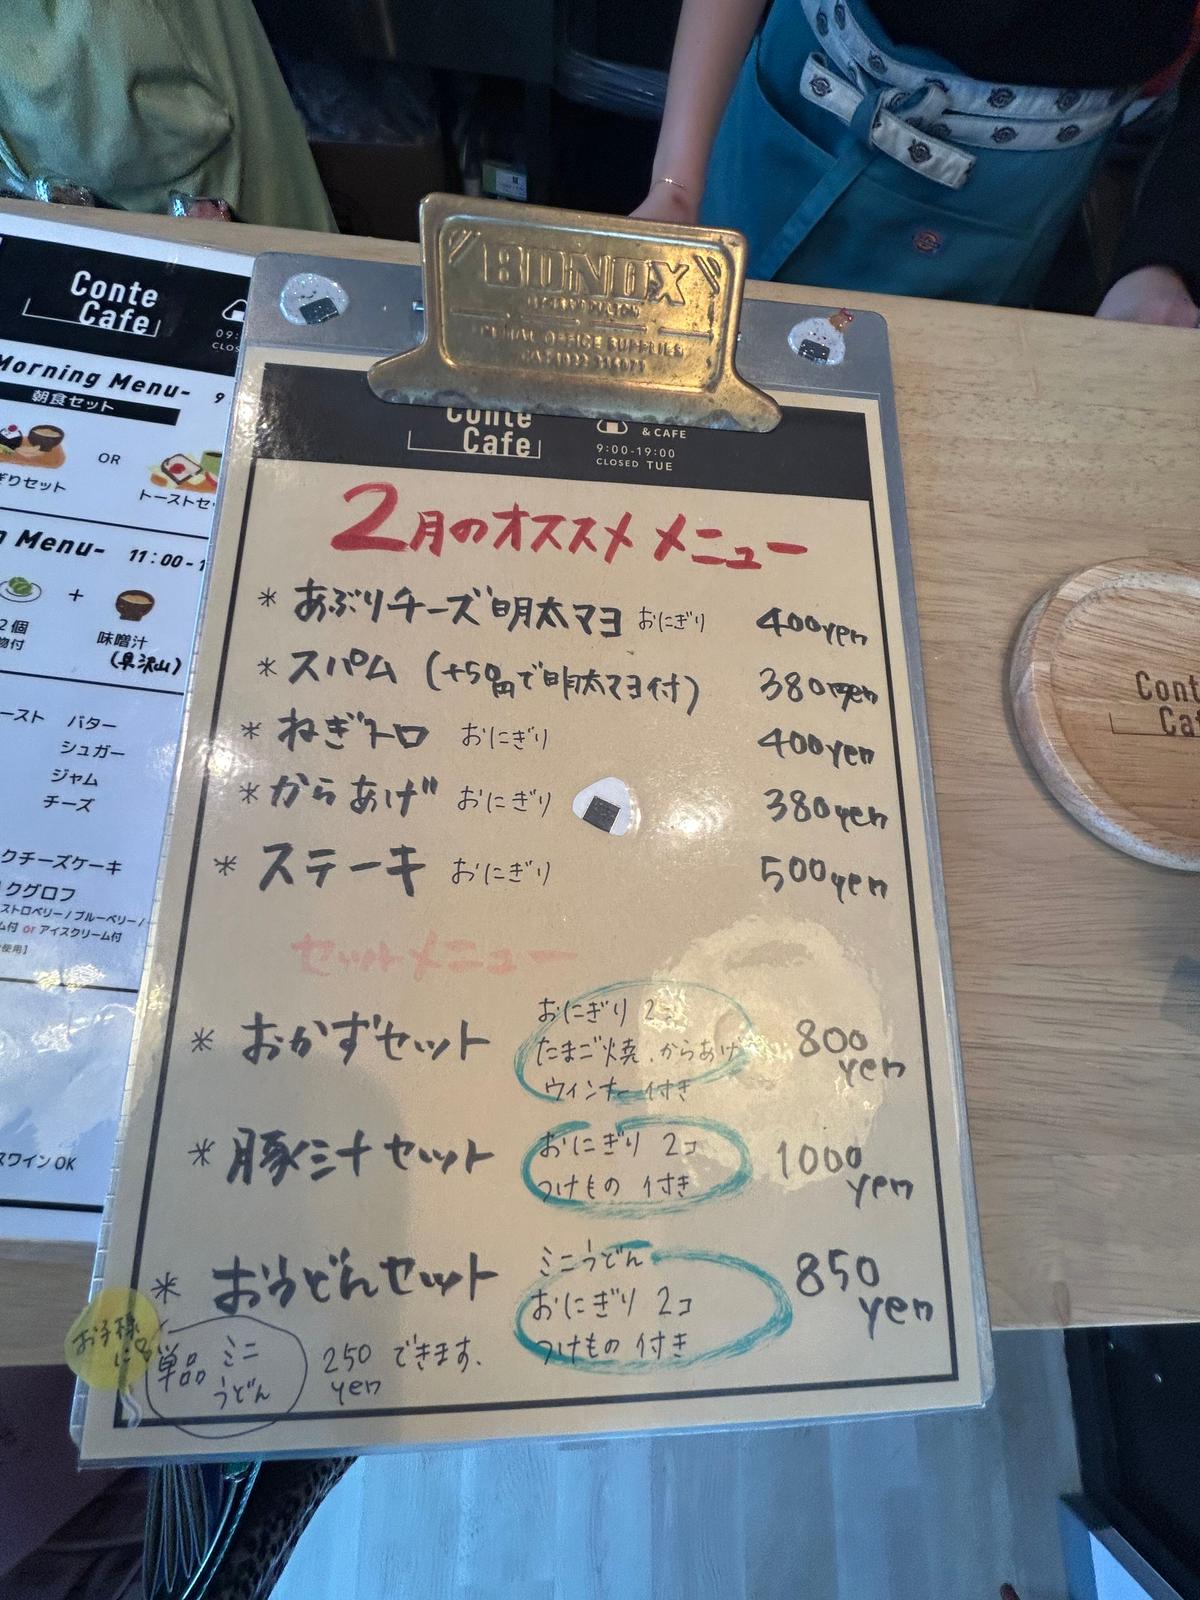 Conte
Cafe
Morning Menu-
9
朝食セット
OR
ぎりセット
トーストセッ
Menu-
11:00-1
+
2個
物付
味噌汁
(具沢山)
ースト
バター
シュガー
ジャム
チーズ
クチーズケーキ
クグロフ
ストロベリー/ブルーベリー/
ム付 or アイスクリーム付
使用]
スワインOK
BONOX
OFFICE SUPPLIES
Conte
Cafe
& CAFE
9:00-19:00
CLOSED TUE
2月のオススメメニュー
* あぶりチーズ明太マヨ おにぎり 400yen
* スパム (+50円で明太マヨ付) 380yen
* ねぎトロ おにぎり 400yen
* からあげ おにぎり 380yen
* ステーキ おにぎり 500yen
セットメニュー
* おかずセット
おにぎり 2コ
たまご焼、からあげ
ウィンナー付き
800
yen
* 豚汁セット
おにぎり 2コ
つけもの 付き
1000
yen
* おうどんセット
ミニうどん
おにぎり 2コ
つけもの 付き
850
yen
お子様
に♡
単品
ミニ
うどん
250
yen
できます.
Cont
Caf